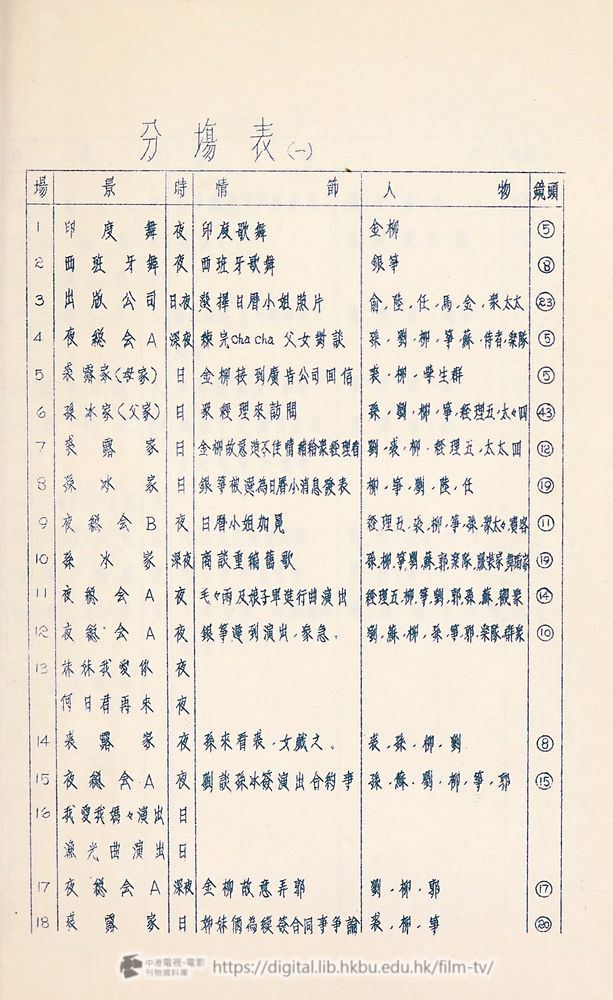 分場表(一)
場 景 時 情節 人物 鏡頭
1 印度舞 夜 印度歌舞 金柳 ⑤
2 西班牙舞 夜 西班牙歌舞 銀箏 ⑧
3 出版公司 日夜 選擇日曆小姐照片 俞、陸、任、馬、金、眾太太 ㉓
4 夜總会A 深夜 練完cha cha 父女對談 孫、劉、柳、箏、蘇、侍者、樂隊 ⑤
5 裘露家(母家) 日 金柳接到廣告公司回信 裘、柳、學生群 ⑤
6 孫冰家(父家) 日 眾經理來訪問 孫、劉、柳、箏、經理五、太々四 ㊸
7 裘露家 日 金柳故意 劉、裘、柳、經理五、太太四 ⑫
8 孫冰家 日 銀箏被選為日曆小消息發表 柳、箏、劉、陸、任 ⑲
9 夜總会B 夜 日曆小姐加冕 經理五、裘、柳、箏、孫、眾太々、賓客 ⑪
10 孫冰家 深夜 商談重編舊歌 孫、柳、箏、劉、蘇、郭、樂隊、服裝家 ⑲
11 夜總会A 夜 毛々雨及娘子軍進行曲演出 經理五、柳、箏、劉、郭、孫、蘇、觀眾 ⑭
12 夜總会A 夜 銀箏遲到演出,眾急。 劉、蘇、柳、孫、箏、郭、樂隊、群眾 ⑩
13 妹妹我愛你 夜
何日君再來 夜
14 裘露家 夜 孫來看裘、女戲之。 裘、孫、柳、劉 ⑧
15 夜總会A 夜 劉談孫冰簽演出合約事 孫、蘇、劉、柳、箏、郭 ⑮
16 我愛我媽々演出 日
漁光曲演出 日
17 夜總会A 深夜 金柳故意弄郭 劉、柳、郭 ⑰
18 裘露家 日 姊妹倆為續簽合同事爭論 裘、柳、箏 ⑳
中港電視・電影
刊物資料庫
https://digital.lib.hkbu.edu.hk/film-tv/